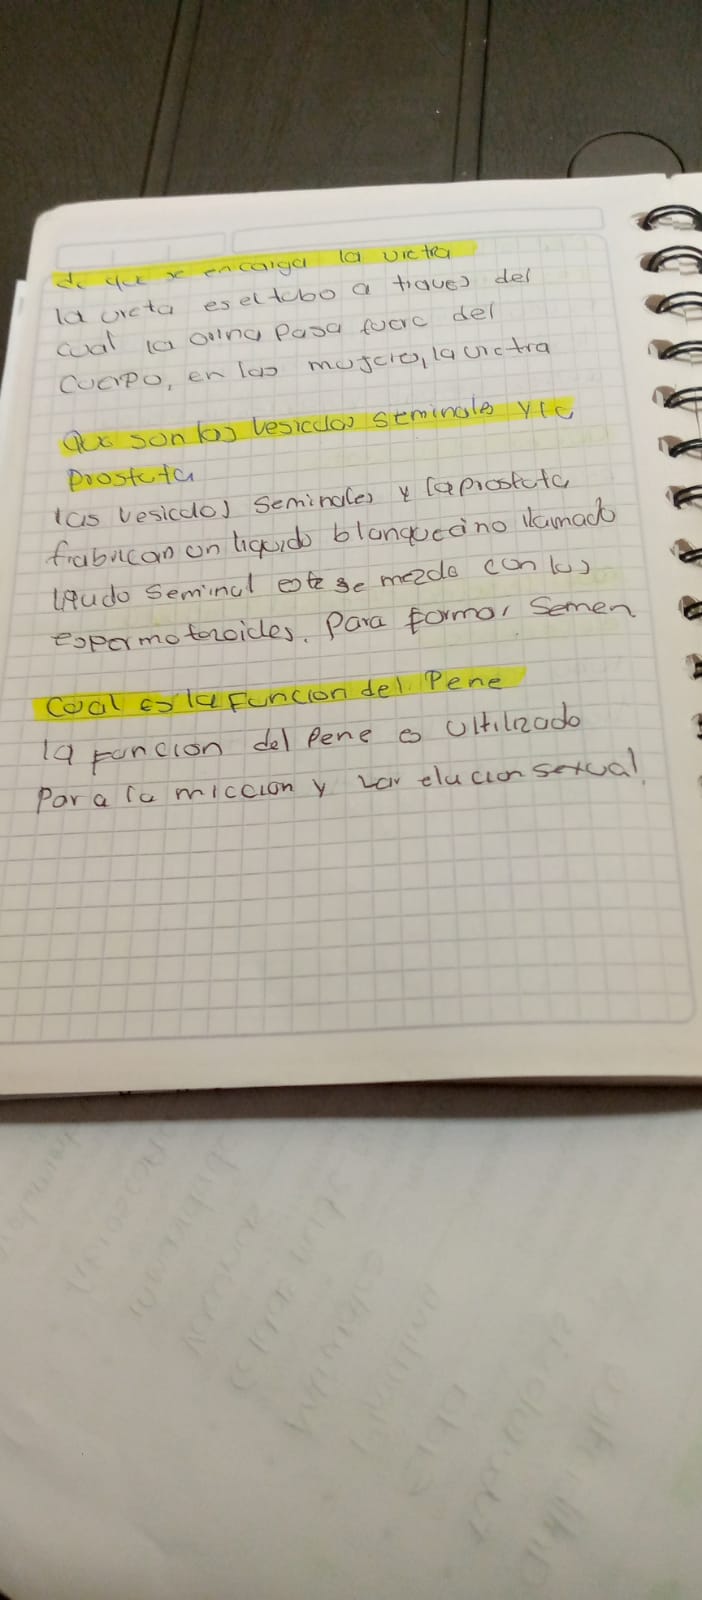 de que se encarga la uretra
la ureta es el tubo a traves del
cual la orina pasa fuera del
cuerpo, en las mujeres, la uretra
Que son las vesiculas seminales y la
prostata
las vesiculas seminales y la prostata
frabrican un liquido blanquecino llamado
liquido seminal este se mezcla con los
espermatozoides. Para formar semen
Cual es la Funcion del Pene
la funcion del Pene es Ultilizado
Para la miccion y
sexual.